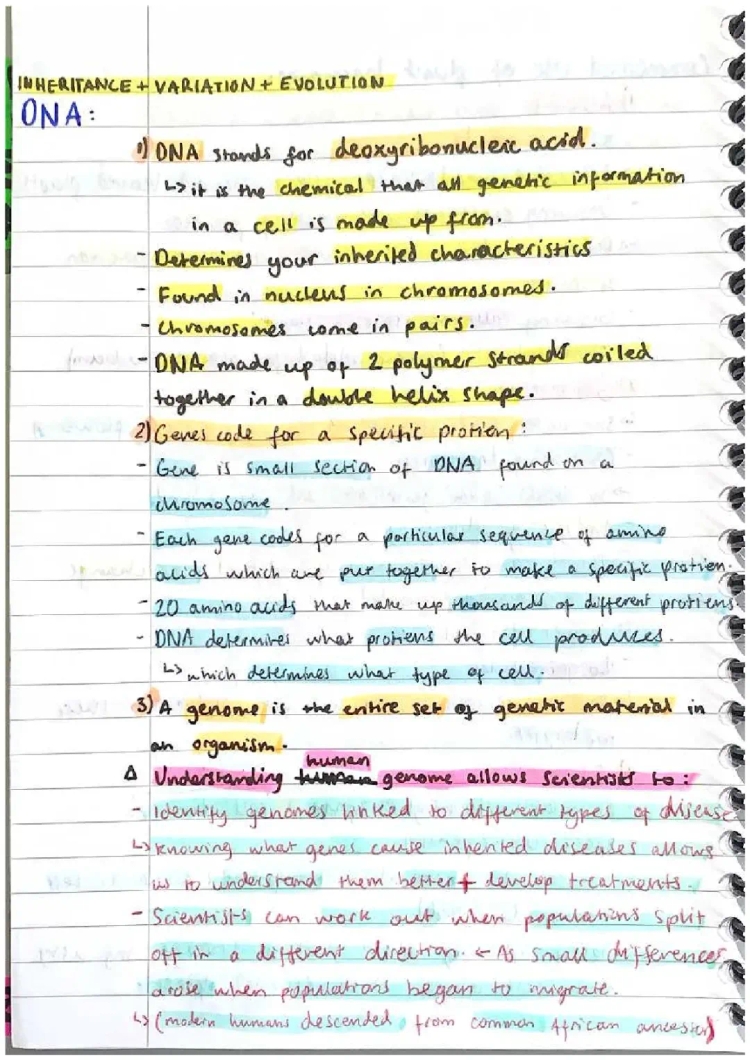 INHERITANCE + VARIATION + EVOLUTION
DNA:
1) DNA stands for deoxyribonucleic acid.
↳ it is the chemical that all genetic information
in a cell is made up from.
- Determines your inherited characteristics
- Found in nucleus in chromosomes.
- Chromosomes come in pairs.
- DNA made up of 2 polymer strands coiled
together in a double helix shape.
2) Genes code for a specific protien:
- Gene is small section of DNA found on a
chromosome.
- Each gene codes for a particular sequence of amino
acids which are put together to make a specific protien.
- 20 amino acids that make up thousands of different protiens.
- DNA determines what protiens the cell produces.
↳ which determines what type of cell.
3) A genome is the entire set of genetic material in
an organism.
Δ Understanding human genome allows scientists to:
- Identify genomes linked to different types of disease
↳ knowing what genes cause inherited diseases allows
us to understand them better + develop treatments.
- Scientists can work out when populations split
off in a different direction. ← As small differences
arose when populations began to migrate.
↳ (modern humans descended from common African ancestor)